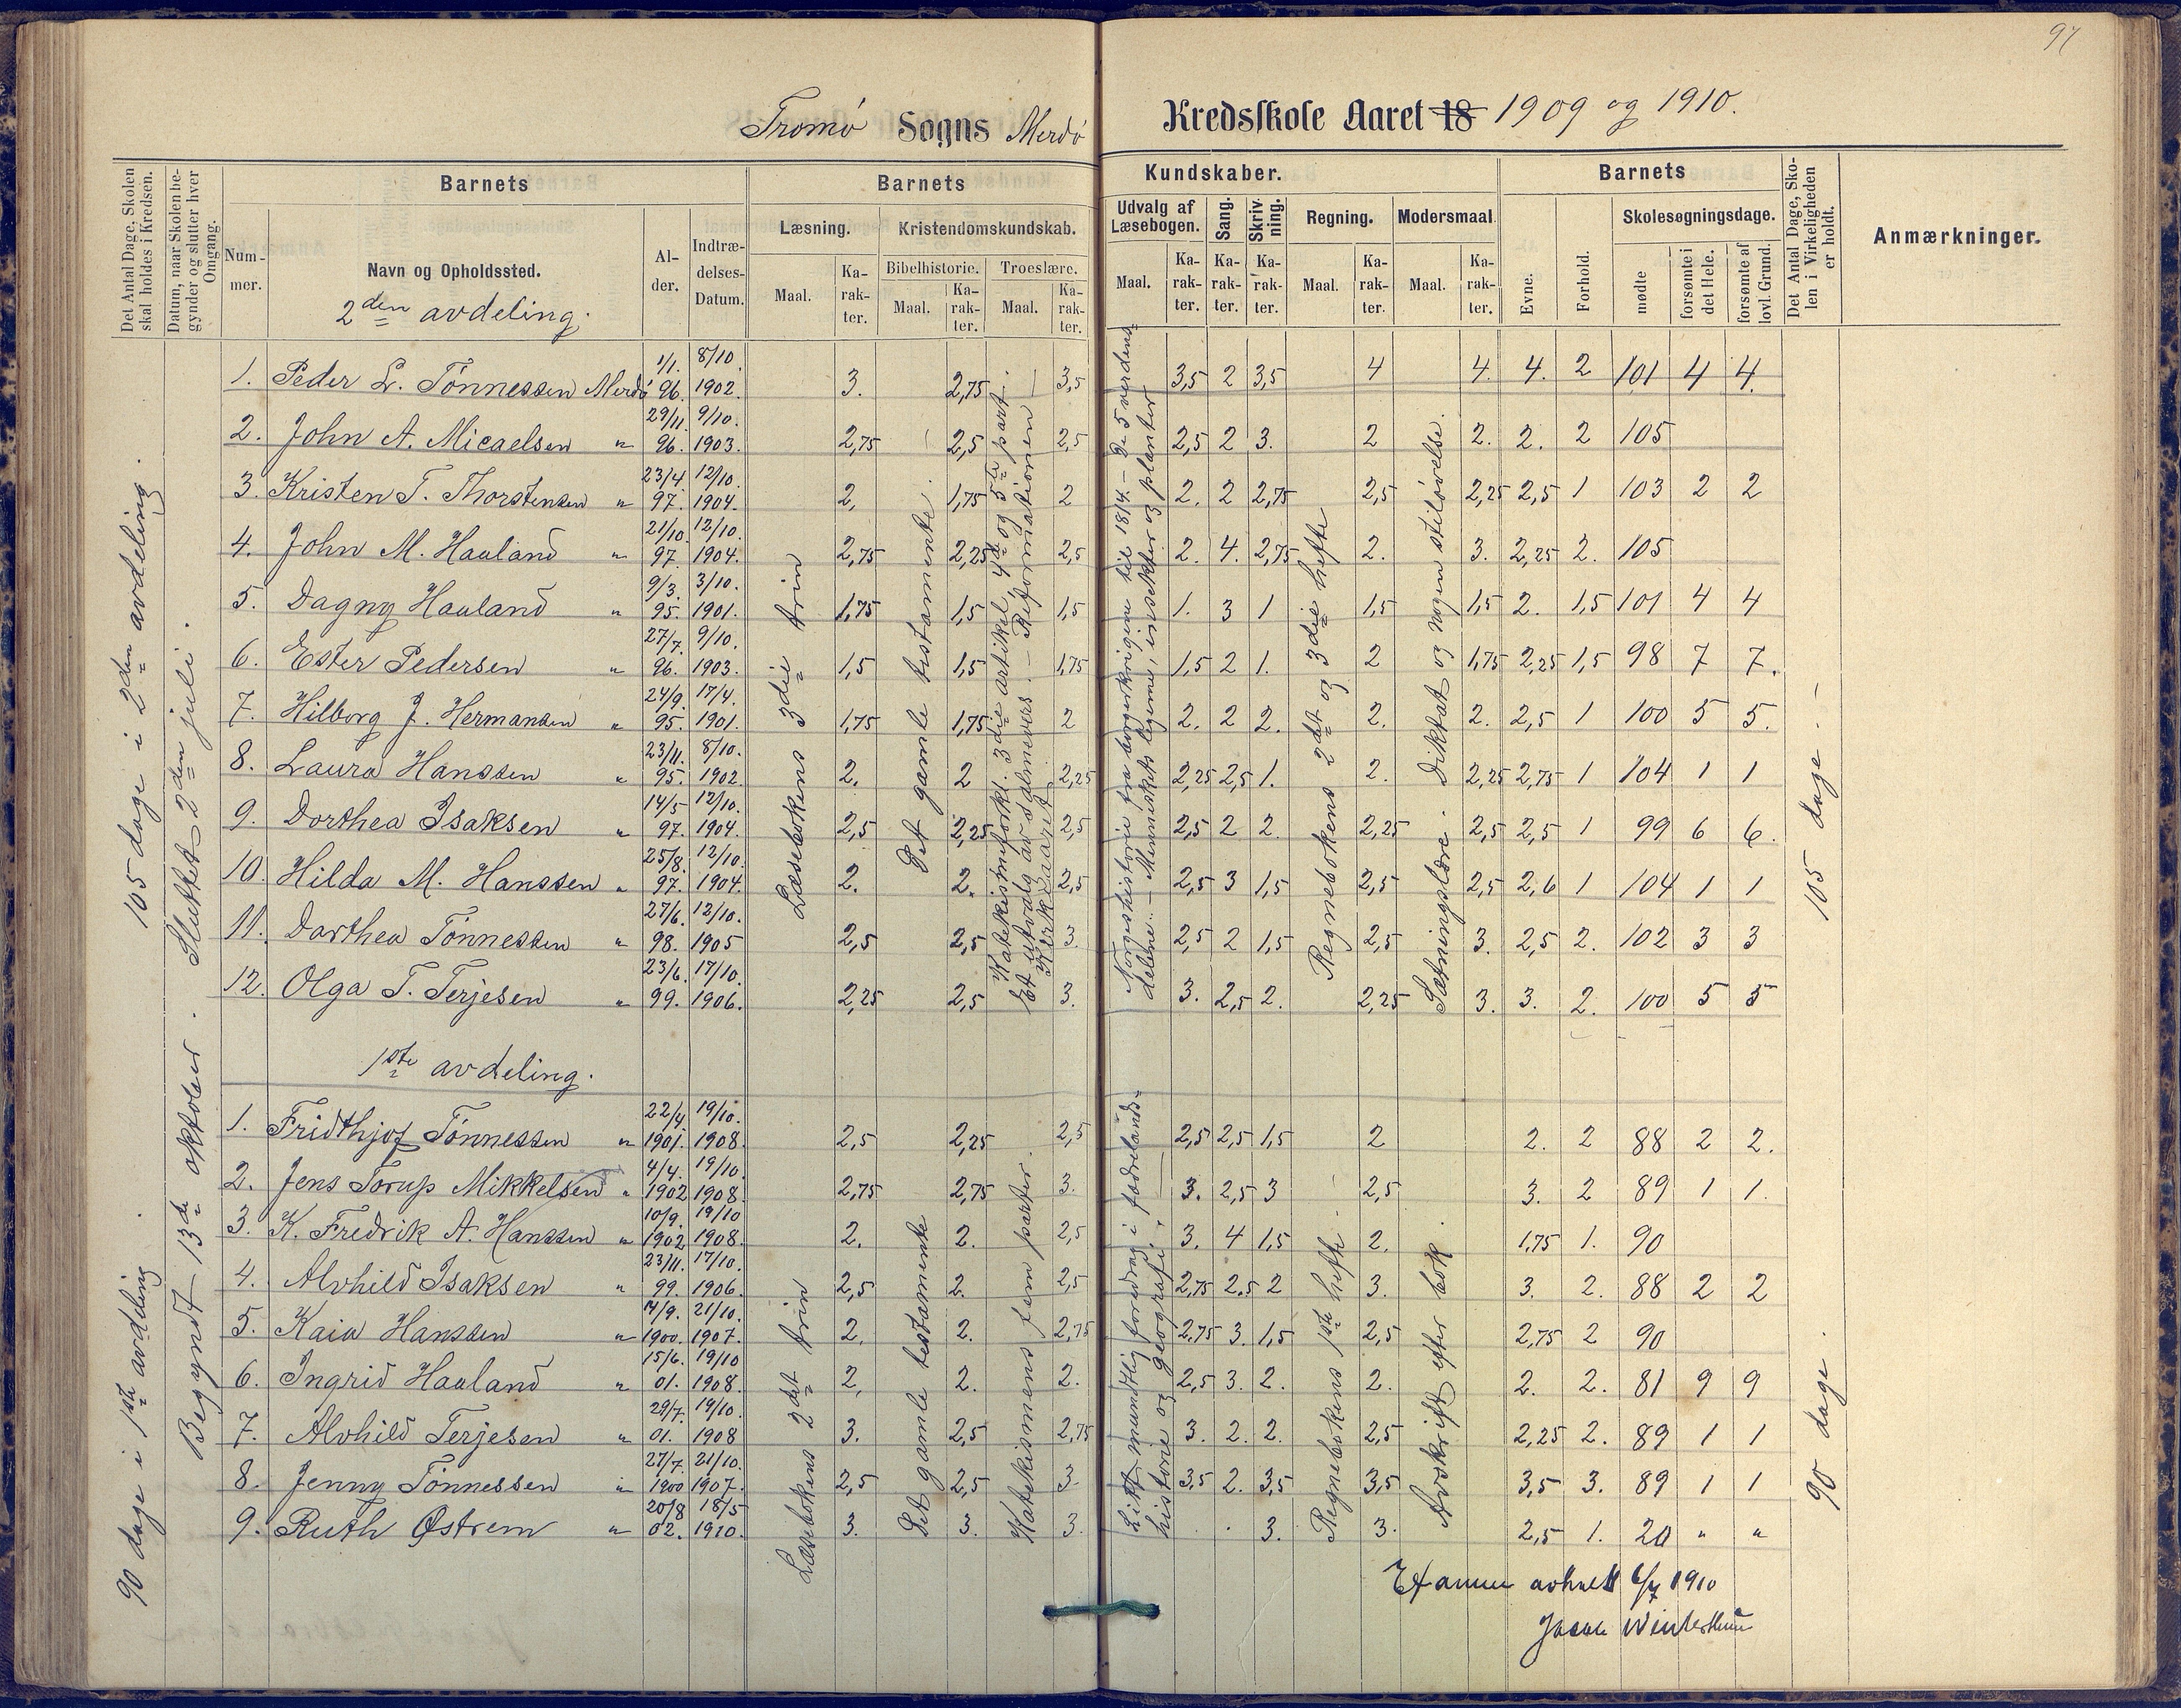 97
Tromø Sogns Merdø Kredsskole Aaret 18 1909 og 1910.
Det Antal Dage, Skolen skal holdes i Kredsen.
Datum, naar Skolen begynder og slutter hver Omgang.
Barnets
Nummer.
Navn og Opholdssted.
Alder.
Indtrædelses-Datum.
Barnets Kundskaber.
Læsning.
Maal.
Karakter.
Kristendomskundskab.
Bibelhistorie.
Maal.
Karakter.
Troeslære.
Maal.
Karakter.
Udvalg af Læsebogen.
Maal.
Karakter.
Sang.
Karakter.
Skrivning.
Karakter.
Regning.
Maal.
Karakter.
Modersmaal.
Maal.
Karakter.
Barnets
Evne.
Forhold.
Skolesøgningsdage.
mødte
forsømte i det Hele.
forsømte af lovl. Grund.
Det Antal Dage, Skolen i Virkeligheden er holdt.
Anmærkninger.
2den avdeling.
1. Peder L. Tønnessen Merdø 1/1. 96. 8/10. 1902. 3. 2,75 3,5 3,5 2 3,5 4 4. 4. 2 101 4 4.
2. John A. Micaelsen " 29/11. 96. 9/10. 1903. 2,75 2,5 2,5 2,5 2 3. 2 2. 2. 2 105
3. Kristen T. Thorstensen " 23/4 97. 12/10. 1904. 2. 1,75 2 2. 2 2,75 2,5 2,25 2,5 1 103 2 2
4. John M. Hauland " 21/10. 97. 12/10. 1904. 2,75 2,25 2,5 2. 4. 2,75 2. 3. 2,25 2. 105
5. Dagny Hauland " 9/3. 95. 3/10. 1901. 1,75 1,5 1,5 1. 3 1 1,5 1,5 2. 1,5 101 4 4
6. Ester Pedersen " 27/7. 96. 9/10. 1903. 1,5 1,5 1,75 1,5 2 1. 2 1,75 2,25 1,5 98 7 7.
7. Hilborg J. Hermansen " 24/9. 95. 17/4. 1901. 1,75 1,75 2 2. 2 2. 2. 2. 2,5 1 100 5 5.
8. Laura Hanssen " 23/11. 95. 8/10. 1902. 2. 2 2,25 2,25 2,5 1. 2. 2,25 2,75 1 104 1 1
9. Dorthea Isaksen " 14/5 97. 12/10. 1904. 2,5 2,25 2,5 2,5 2 2. 2,25 2,5 2,5 1 99 6 6.
10. Hilda M. Hanssen " 25/8. 97. 12/10. 1904. 2. 2. 2,5 2,5 3 1,5 2,5 2,5 2,6 1 104 1 1
11. Dorthea Tønnessen " 27/6. 98. 12/10. 1905 2,5 2,5 3. 2,5 2 1,5 2,5 3. 2,5 2. 102 3 3
12. Olga T. Terjesen " 23/6. 99. 17/10. 1906. 2,25 2,5 3. 3. 2,5 2. 2,25 3. 3. 2. 100 5 5
105 dage i 2den avdeling.
Begyndt 13de oktober. Sluttet 2den juli.
Læsebokens 3die trin
Det gamle testamente.
Katekismeforkl. 3die artikel, 4de og 5te part.
Et utvalg av salmevers. – Reformationen –
Kirkeaaret
Norgeshistorie fra borgerkrigene til 1814. – De 5 verdens-
delene. – Menneskets legeme, insekter og planter
Regnebokens 2det og 3die hefte
Sætningslære. Diktat og nogen stiløvelse.
105 dage. –
1ste avdeling.
1. Fridthjof Tønnessen " 22/4 1901. 19/10. 1908. 2,5 2,25 2,5 2,5 2,5 1,5 2 2. 2 88 2 2.
2. Jens Torup Mikkelsen " 4/4. 1902 19/10. 1908. 2,75 2,75 3. 3. 2,5 3 2,5 3. 2 89 1 1.
3. K. Fredrik A. Hanssen " 10/9. 1902 19/10 1908. 2. 2. 2,5 3. 4 1,5 2. 1,75 1. 90
4. Alvhild Isaksen " 23/11. 99. 17/10. 1906. 2,5 2. 2,5 2,75 2.5 2 3. 3. 2. 88 2 2
5. Kaia Hanssen " 14/9. 1900. 21/10. 1907. 2. 2. 2,75 2,75 3. 1,5 2,5 2,75 2 90
6. Ingrid Hauland " 15/6. 01. 19/10 1908. 2. 2. 2. 2,5 3. 2. 2. 2. 2. 81 9 9
7. Alvhild Terjesen " 29/7. 01. 19/10. 1908 3. 2,5 2,75 3. 2. 2. 2,5 2,25 2. 89 1 1
8. Jenny Tønnessen " 27/7. 1900 21/10. 1907. 2,5 2,5 3. 3,5 2. 3,5 3,5 3,5 3. 89 1 1
9. Ruth Østrem " 20/8 02. 18/5 1910. 3. 3. 3. 3. 3. 2,5 1. 20 " "
90 dage i 1ste avdeling.
Læsebokens 2det trin
Det gamle testamente
Katekismens fem parter.
Litt mundtlig foredrag i fædrelands-
historie og geografi.
Regnebokens 1ste hefte.
Avskrift efter bok.
90 dage.
Examen avholdt 6/7 1910